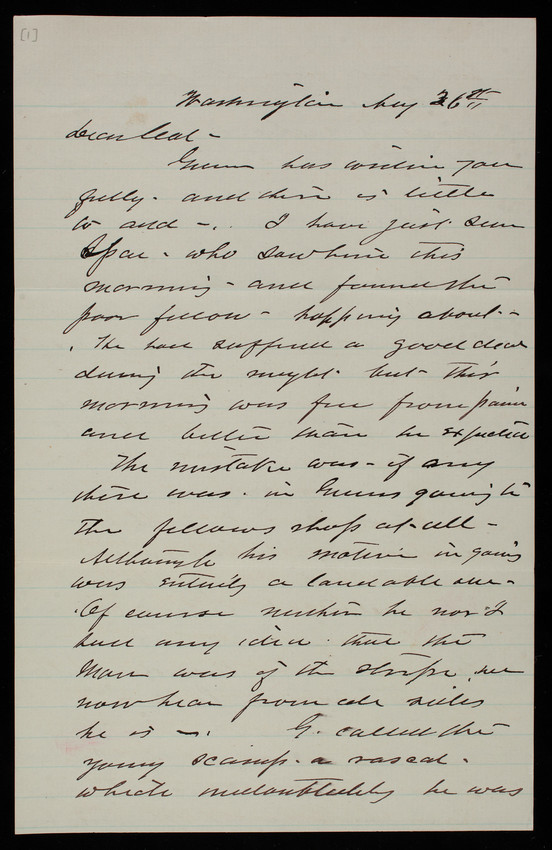 [1]
Washington Aug 26th
Dear Casl -
Green has written you
fully - and there is little
to add - . . I have just seen
who saw him this
morning - and found the
poor fellow - hopping about -
. He had suffered a good deal
during the night - but this
morning was free from pain
and better than he expected
The mistake was - if any
there was - in Greens going to
the fellows shop at - all -
Although his motive in going
was entirely a laudable one -
. Of course neither he nor I
had any idea - that the
man was of the stripe, we
now hear from all sides
he is - . G. called the
young scamp - a rascal -
which undoubtedly he was